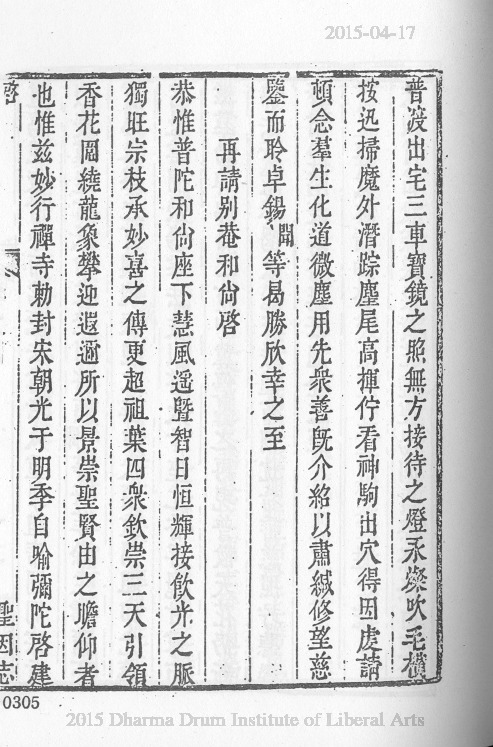 2015-04-17
普渡出宅三車寶鏡之照無方接待之燈永燦吹毛橫
按迅掃魔外潛踪麈尾高揮佇看神駒出穴得因虔請
頓念羣生化道微塵用先衆善旣介紹以肅緘修望慈
鑒而聆卓錫聞等曷勝欣幸之至
再請别菴和尙啓
恭惟普陀和尙座下慧風遥曁智日恒輝接飮光之脈
獨旺宗枝承妙喜之傳更超祖葉四衆欽崇三天引領
香花圍繞龍象攀迎遐邇所以景崇聖賢由之瞻仰者
也惟兹妙行禪寺勅封宋朝光于明季自喻彌陀啓建
聖因志
0305
2015 Dharma Drum Institute of Liberal Arts